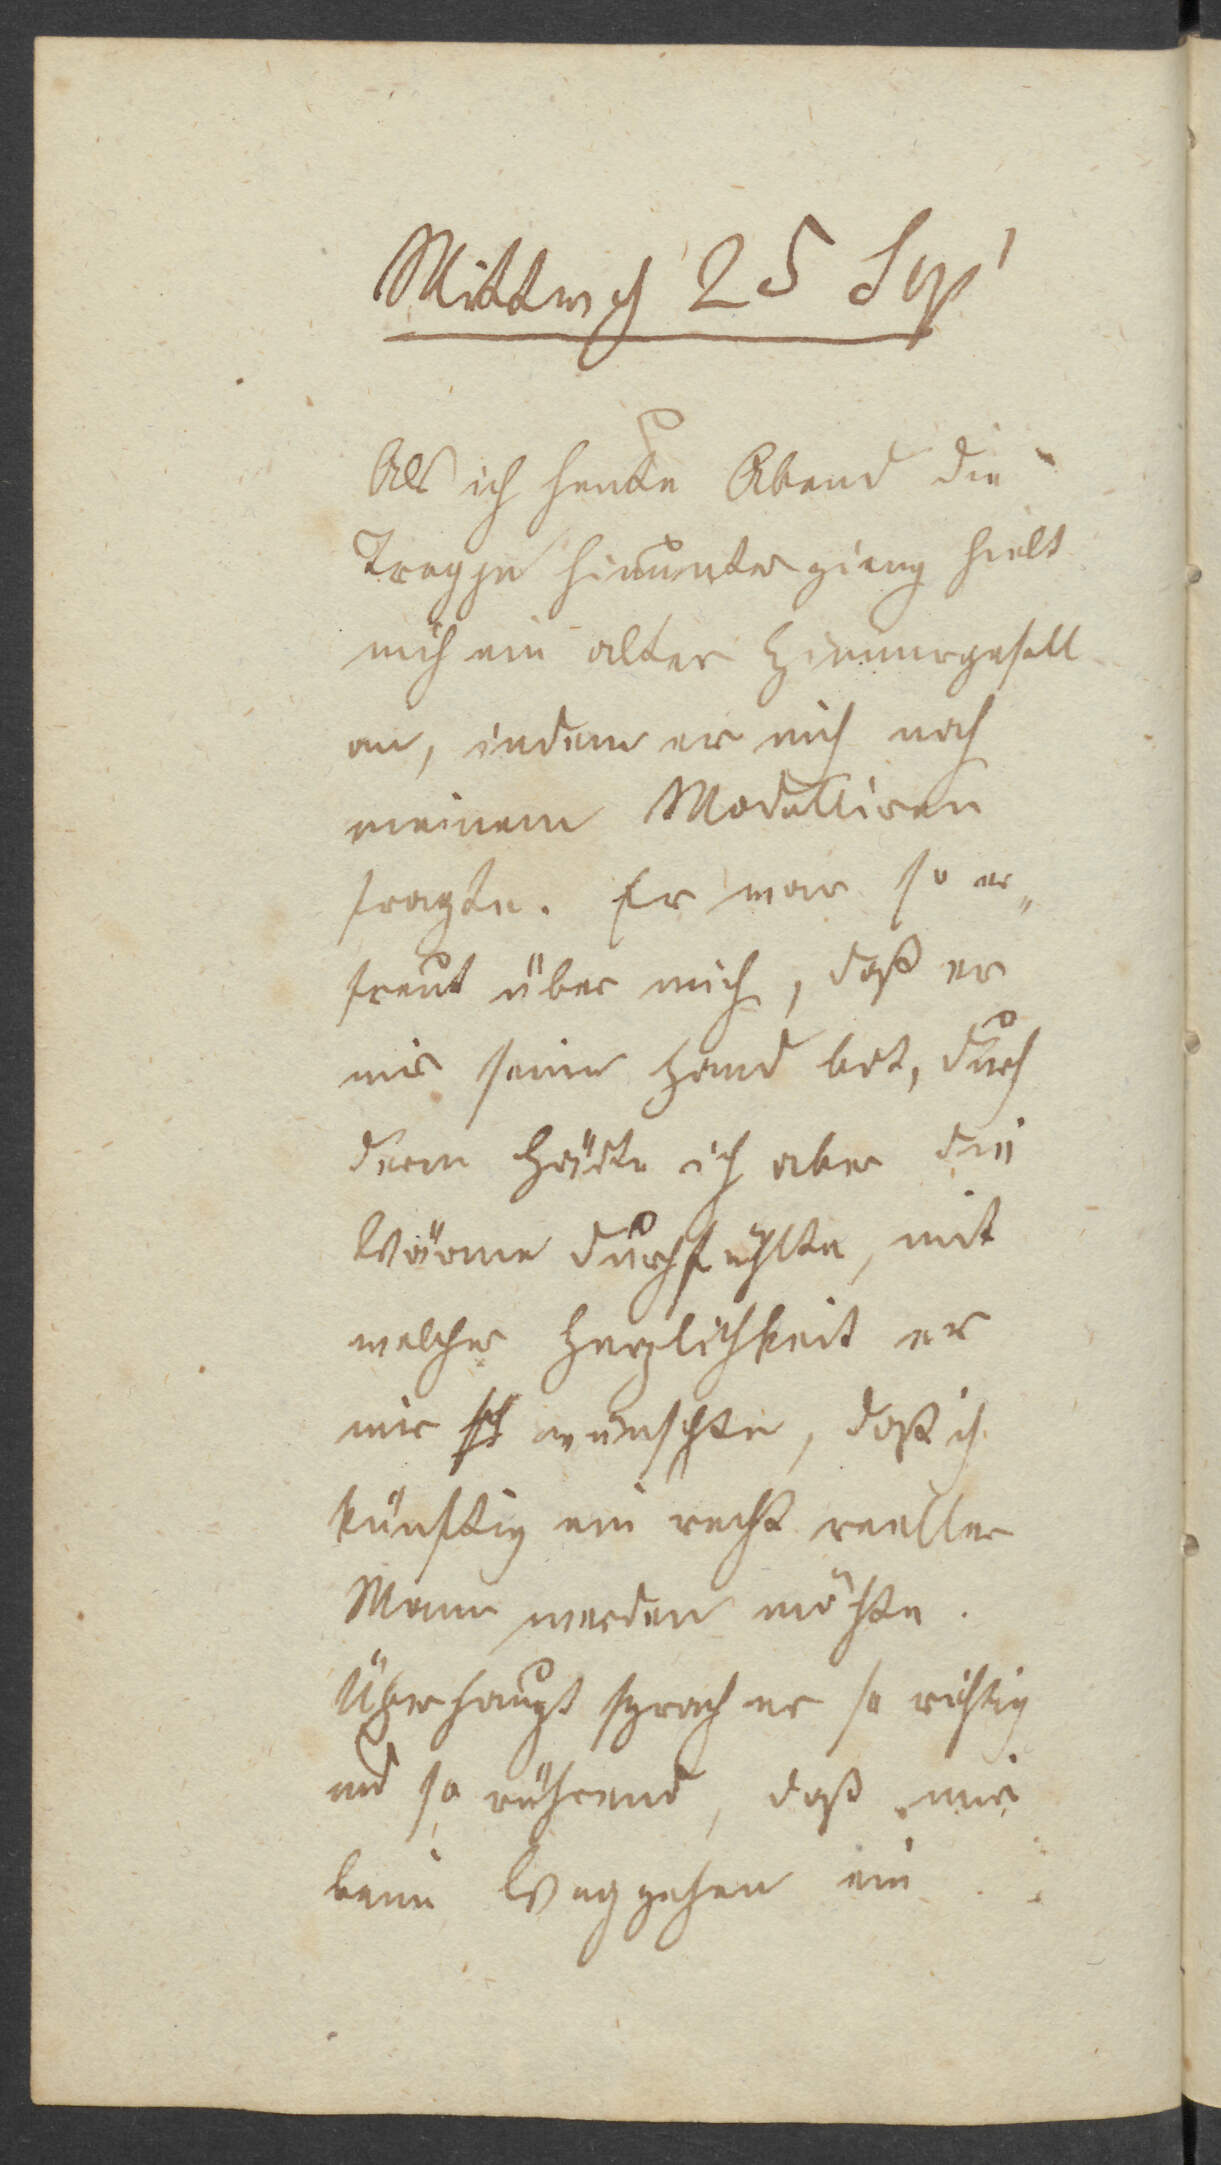 Mittwch 25 Sep
Als ich heute Abend die
Treppe hinunter gieng hielt
mich ein alter Zimmergesell
an, indem er mich nach
meinem Modelliren
fragte. Er war so er„
freut über mich, daß er
mir seine Hand bot, durch
deren Härte ich aber die
Wärme durchfühlte, mit
welcher Herzlichkeit er
mir wünschte, daß ich
künftig ein recht reeller
Mann werden möchte.
Überhaupt sprach er so richtig
und so rührend, daß mir
beim Weggehen ein